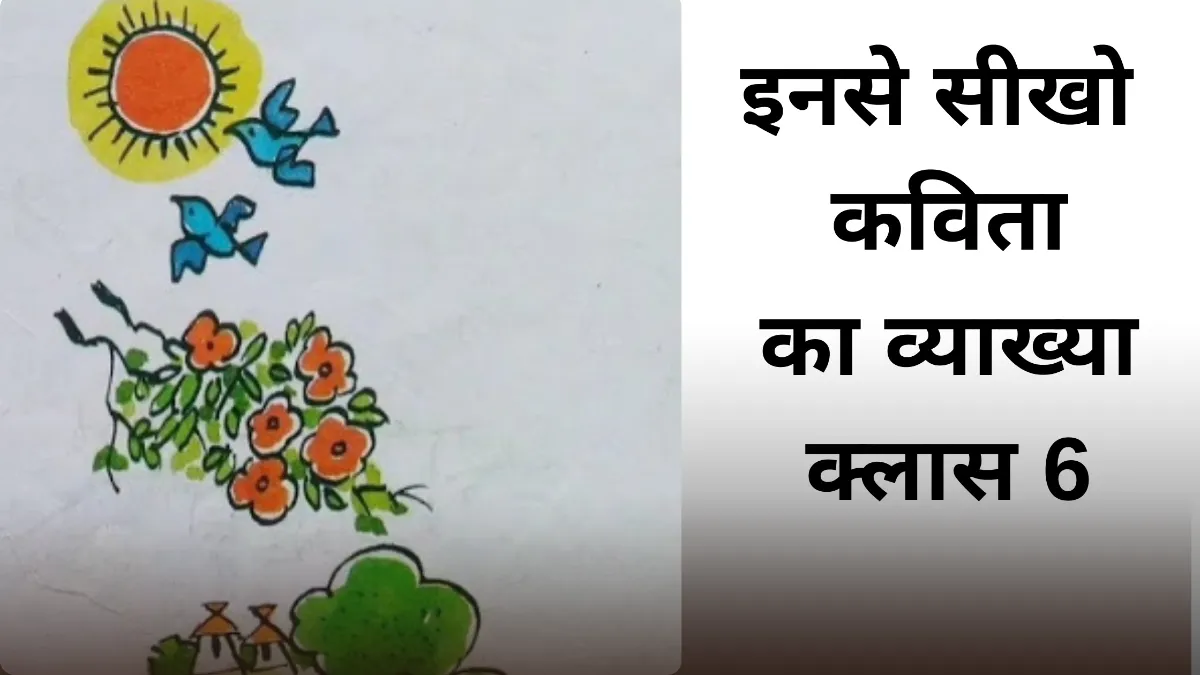 इनसे सीखो
कविता
का व्याख्या
क्लास 6